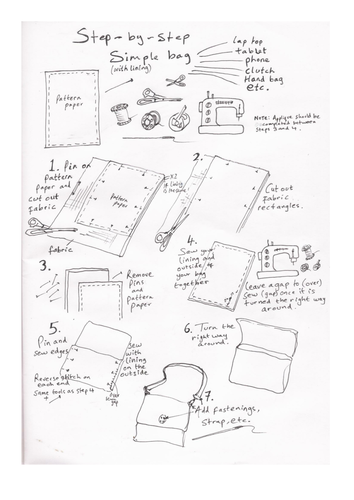 Step-by-Step
Simple bag
(with lining)
lap top
tablet
phone
clutch
Hand bag
etc.
Pattern
paper
NOTE: Applique should be
completed between
steps 3 and 4.
1. Pin on
Pattern
Paper and
cut out
Fabric
Pattern
paper
x2
Fabric
2.
Cut out
Fabric
rectangles.
3.
Remove
Pins
and
Pattern
paper
4.
Sew your
lining and
outside of
your bag
together
Leave a gap to (over)
sew (gap) once it is
turned the right way
around.
5.
Pin and
sew edges
Reverse stitch on
each end
Same tools as step 4
Sew
with
lining
on the
outside
gap
6. Turn the
right way
around.
7.
Add Fastenings,
Strap, etc.